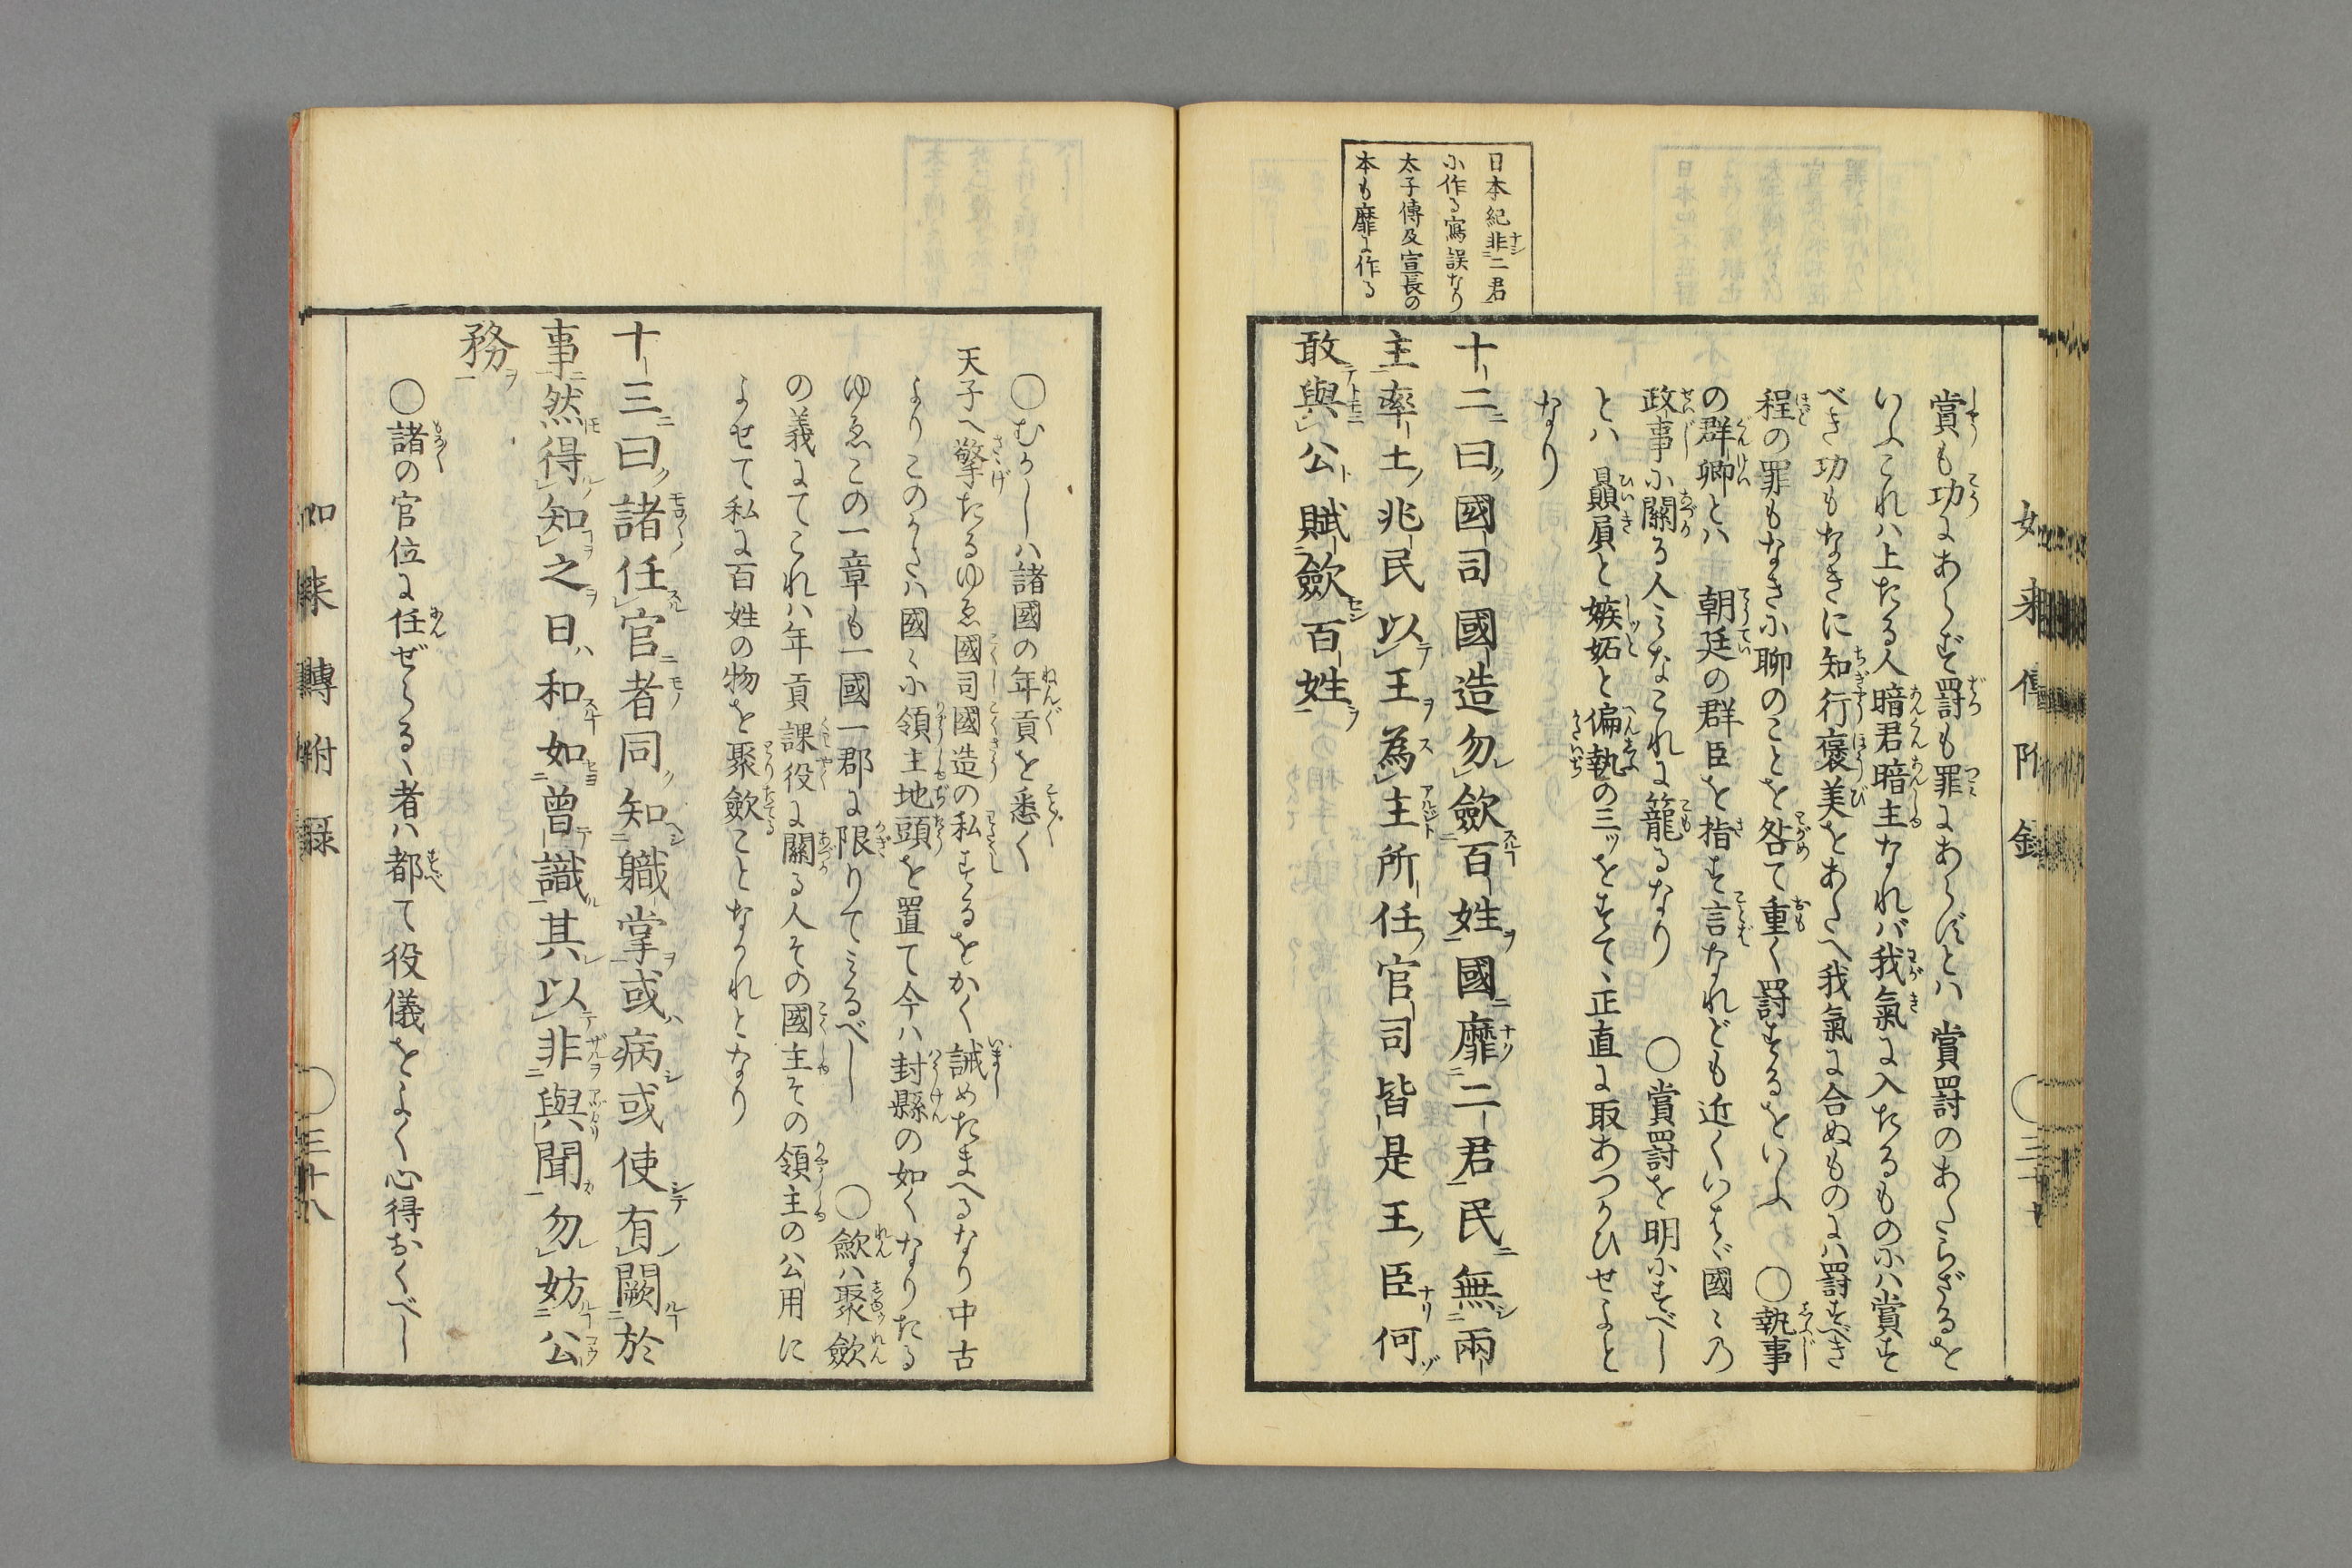 日本紀非二君
小作る寫誤なり
太子傳及宣長の
本も靡に作る
賞も功にあらず罰も罪にあらずとハ賞罰のあたらざるを
いふこれハ上たる人暗君暗主なれバ我氣に入たるもの小ハ賞す
べき功もなきに知行褒美をあたへ我氣に合ぬものにハ罰すべき
程の罪もなき小聊のことを咎て重く罰するをいふ　○執事
の群卿とハ　朝廷の群臣を指す言なれども近くいはゞ國〻乃
政事小關る人みなこれに籠るなり　○賞罰を明小すべし
とハ贔屓と嫉妬と偏執の三ッをすて〻正直に取あつかひせよと
なり
十二曰國司國造勿歛百姓國靡二君民無兩
主率土兆民以王為主所任官司皆是王臣何
敢與公賦歛百姓
○むかしハ諸國の年貢を悉く
天子へ擎たるゆゑ國司國造の私するをかく誡めたまへるなり中古
よりこのかたハ國〻小領主地頭を置て今ハ封縣の如くなりたる
ゆゑこの一章も一國一郡に限りてみるべし　○歛ハ聚歛
の義にてこれハ年貢課役に關る人その國主その領主の公用に
よせて私に百姓の物を聚歛ことなかれとなり
十三曰諸任官者同知職掌或病或使有闕於
事然得知之日和如曾識其以非與聞勿妨公
務
○諸の官位に任ぜらる〻者ハ都て役儀をよく心得おくべし
如来傳附録
○三十七
如来轉附録
○三十八